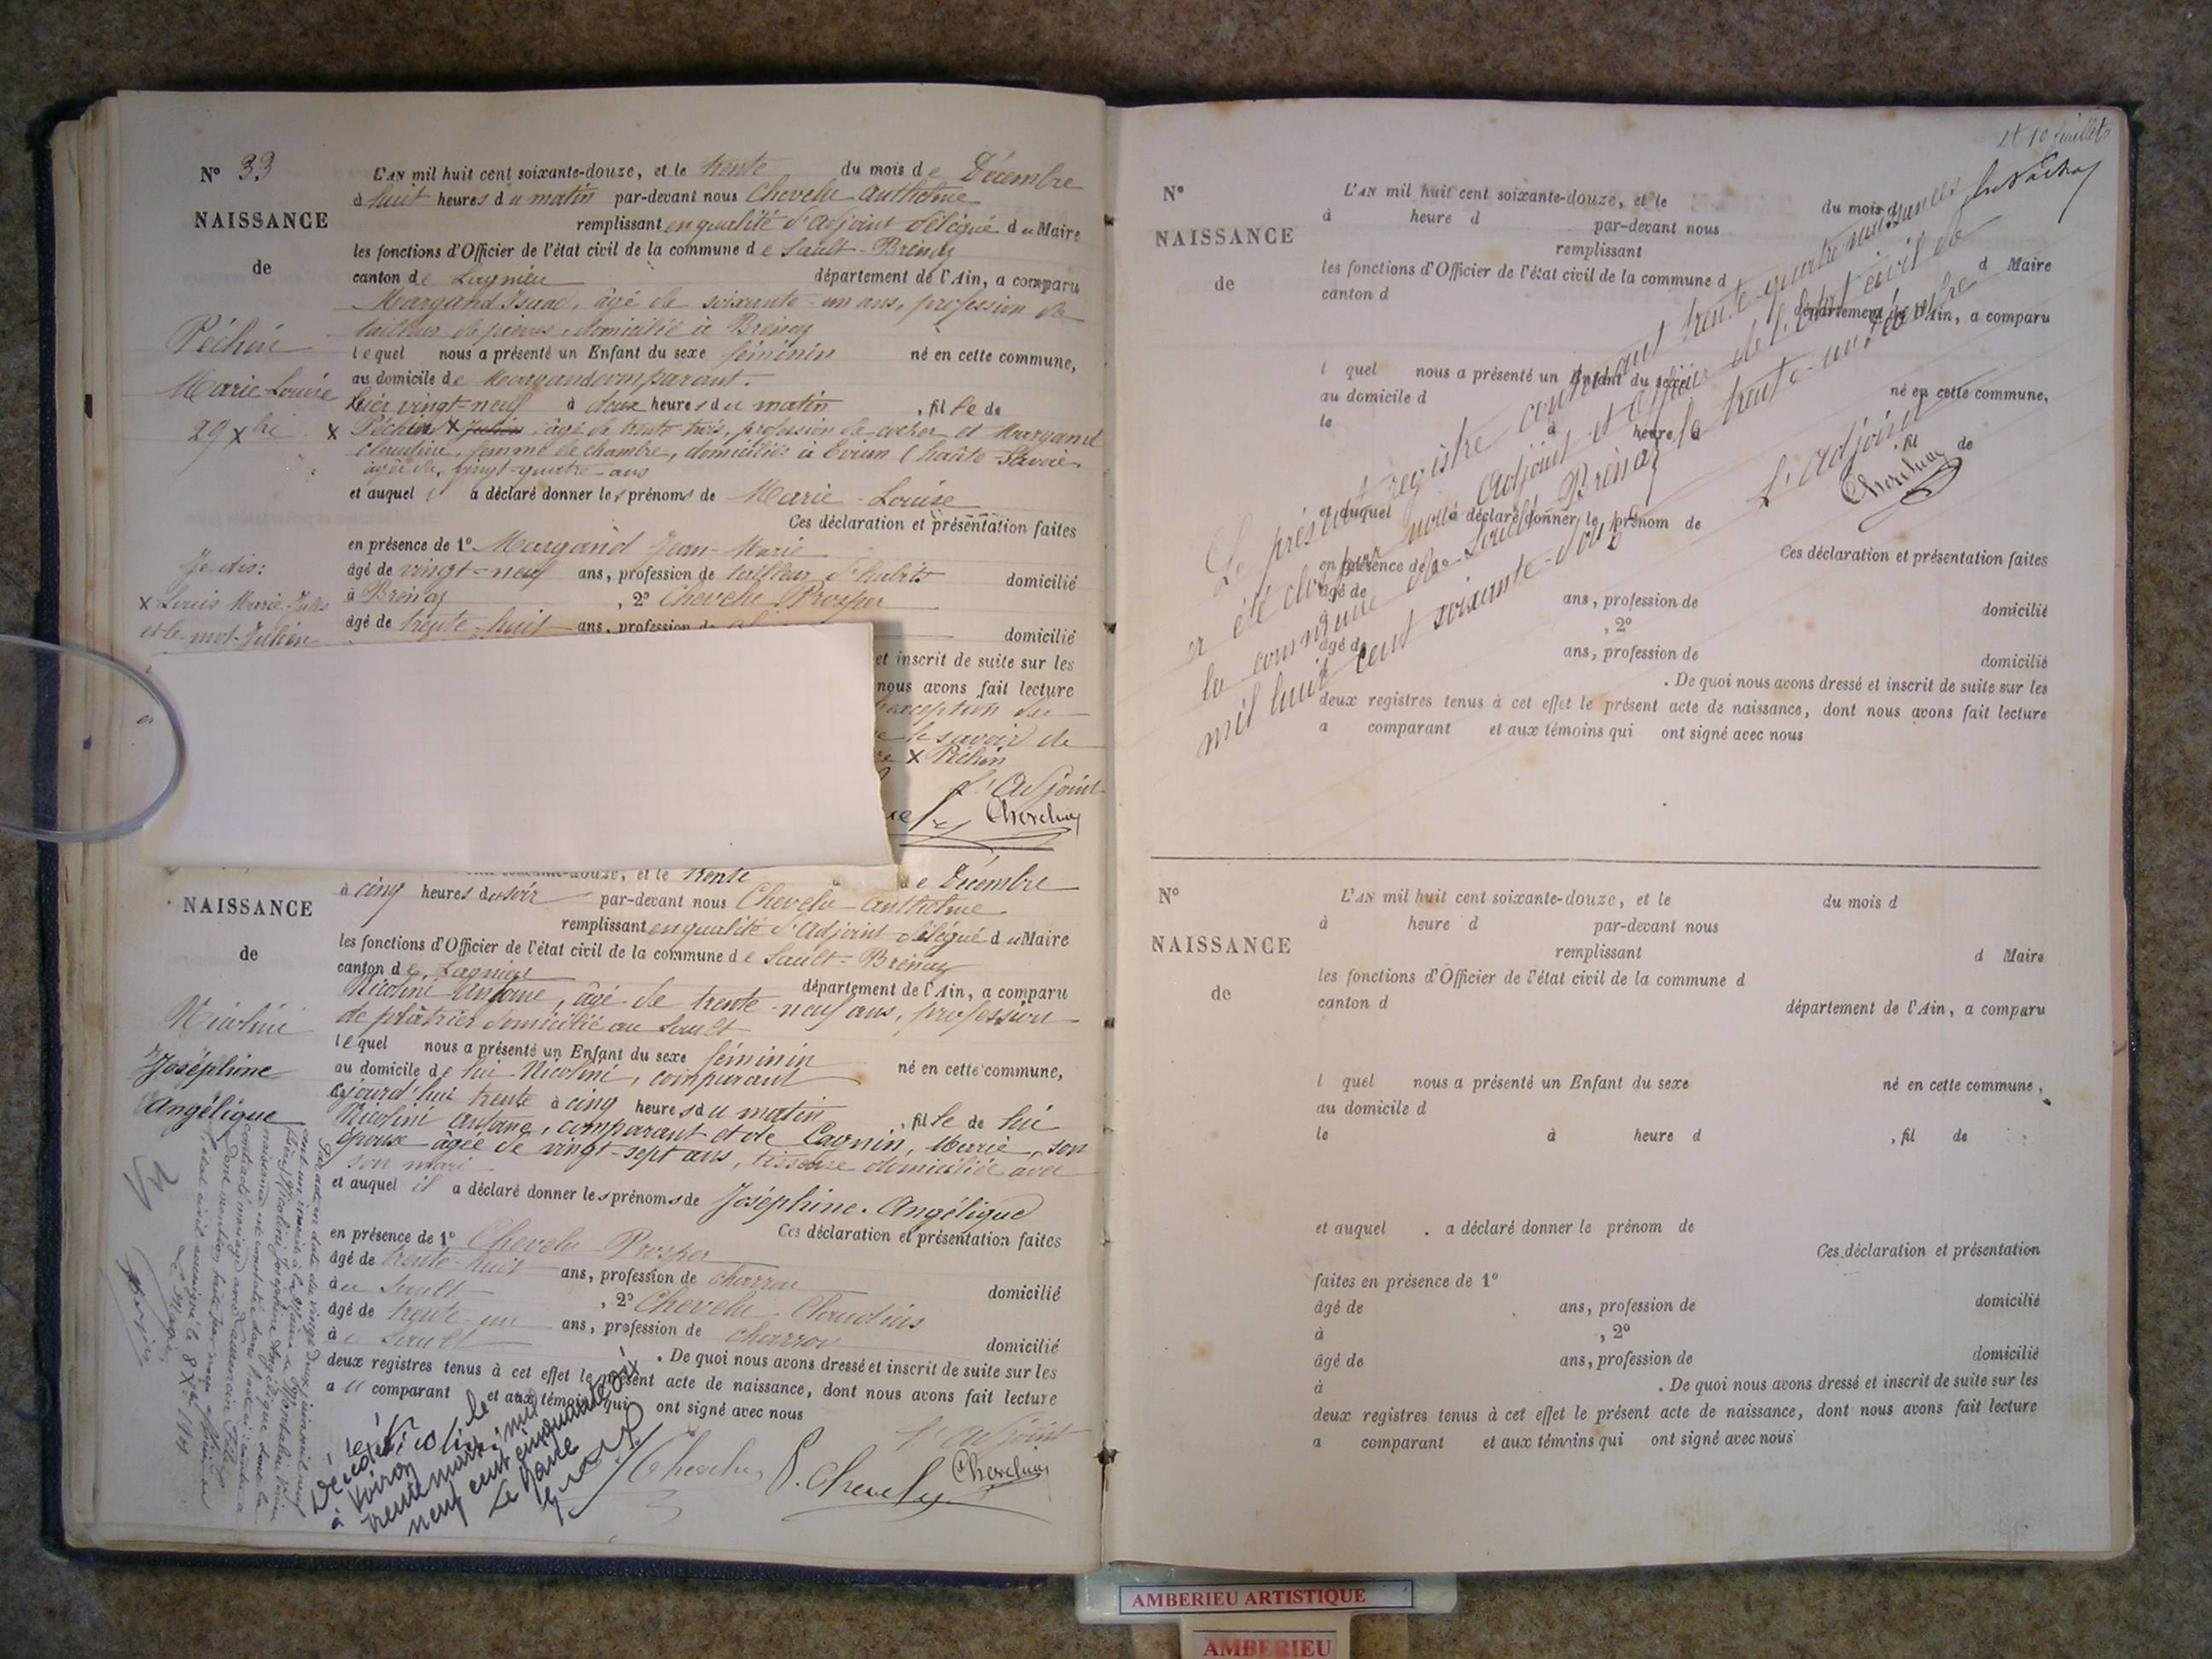 N° 33
NAISSANCE
de
Péchin
Marie Louise
29 Xbre
Je dis:
x Louis Marie Jules
et le mot Julien
L'AN mil huit cent soixante-douze, et le trente du mois de Décembre
à huit heures du matin par-devant nous Chevelu Anthelme
remplissant en qualité d'Adjoint délégué du Maire
les fonctions d'Officier de l'état civil de la commune de Sault-Brénaz
canton de Lagnieu département de l'Ain, a comparu
Margand Isaac, âgé de soixante-un ans, profession de
tailleur de pierres, domicilié à Brénaz
lequel nous a présenté un Enfant du sexe féminin né en cette commune,
au domicile de Margand comparant.
hier vingt-neuf à deux heures du matin , fille de
x Péchin x Julien âgé de trente trois, profession de cocher et Margand
Claudine, femme de chambre, domiciliés à Evian (haute-Savoie.
âgée de vingt-quatre-ans
et auquel il a déclaré donner les prénoms de Marie-Louise
Ces déclaration et présentation faites
en présence de 1° Margand Jean-Marie
âgé de vingt-neuf ans, profession de tailleur d'habits domicilié
à Brénaz , 2° Chevelu Prosper
âgé de trente-huit ans, profession de domicilié
et inscrit de suite sur les
nous avons fait lecture
exception du
le savoir de
x Péchin
L'Adjoint
Chevelu
NAISSANCE
de
Nicolini
Joséphine
Angélique
et le trente de Décembre
à cinq heures du soir par-devant nous Chevelu Anthelme
remplissant en qualité d'Adjoint délégué du Maire
les fonctions d'Officier de l'état civil de la commune de Sault-Brénaz
canton de Lagnieu département de l'Ain, a comparu
Nicolini Antoine, âgé de trente-neuf ans, profession
de plâtrier domicilié au Sault
lequel nous a présenté un Enfant du sexe féminin né en cette commune,
au domicile de lui Nicolini, comparant
aujourd'hui trente à cinq heures du matin , fille de lui
Nicolini Antoine, comparant et de Cagnin, Marie, son
épouse âgée de vingt-sept ans, tisseuse domiciliée avec
son mari
et auquel il a déclaré donner les prénoms de Joséphine. Angélique
Ces déclaration et présentation faites
en présence de 1° Chevelu Prosper
âgé de trente-huit ans, profession de charron domicilié
à au Sault , 2° Chevelu Claudius
âgé de trente-un ans, profession de charron domicilié
à Sault . De quoi nous avons dressé et inscrit de suite sur les
deux registres tenus à cet effet le présent acte de naissance, dont nous avons fait lecture
au comparant et aux témoins qui ont signé avec nous
L'Adjoint
Nicolini Chevelu P. Chevelu Chevelu
Décédée
à Voiron le
trente mars mil
neuf cent cinquante six
Le Maire
N°
NAISSANCE
de
L'AN mil huit cent soixante-douze, et le du mois d
à heure d par-devant nous
remplissant d Maire
les fonctions d'Officier de l'état civil de la commune d
canton d département de l'Ain, a comparu
l quel nous a présenté un Enfant du sexe né en cette commune,
au domicile d
le à heure d , fil de
et auquel a déclaré donner le prénom de
Ces déclaration et présentation faites
en présence de 1°
âgé de ans, profession de domicilié
à , 2°
âgé de ans, profession de domicilié
à . De quoi nous avons dressé et inscrit de suite sur les
deux registres tenus à cet effet le présent acte de naissance, dont nous avons fait lecture
a comparant et aux témoins qui ont signé avec nous
Le présent registre contenant trente-quatre naissances
a été clos par nous Adjoint et officier de l'état civil de
la commune de Sault-Brénaz le trente-un décembre
mil huit cent soixante-douze
L'Adjoint
Chevelu
N°
NAISSANCE
de
L'AN mil huit cent soixante-douze, et le du mois d
à heure d par-devant nous
remplissant d Maire
les fonctions d'Officier de l'état civil de la commune d
canton d département de l'Ain, a comparu
l quel nous a présenté un Enfant du sexe né en cette commune,
au domicile d
le à heure d , fil de
et auquel a déclaré donner le prénom de
Ces déclaration et présentation
faites en présence de 1°
âgé de ans, profession de domicilié
à , 2°
âgé de ans, profession de domicilié
à . De quoi nous avons dressé et inscrit de suite sur les
deux registres tenus à cet effet le présent acte de naissance, dont nous avons fait lecture
a comparant et aux témoins qui ont signé avec nous
AMBERIEU ARTISTIQUE
AMBERIEU